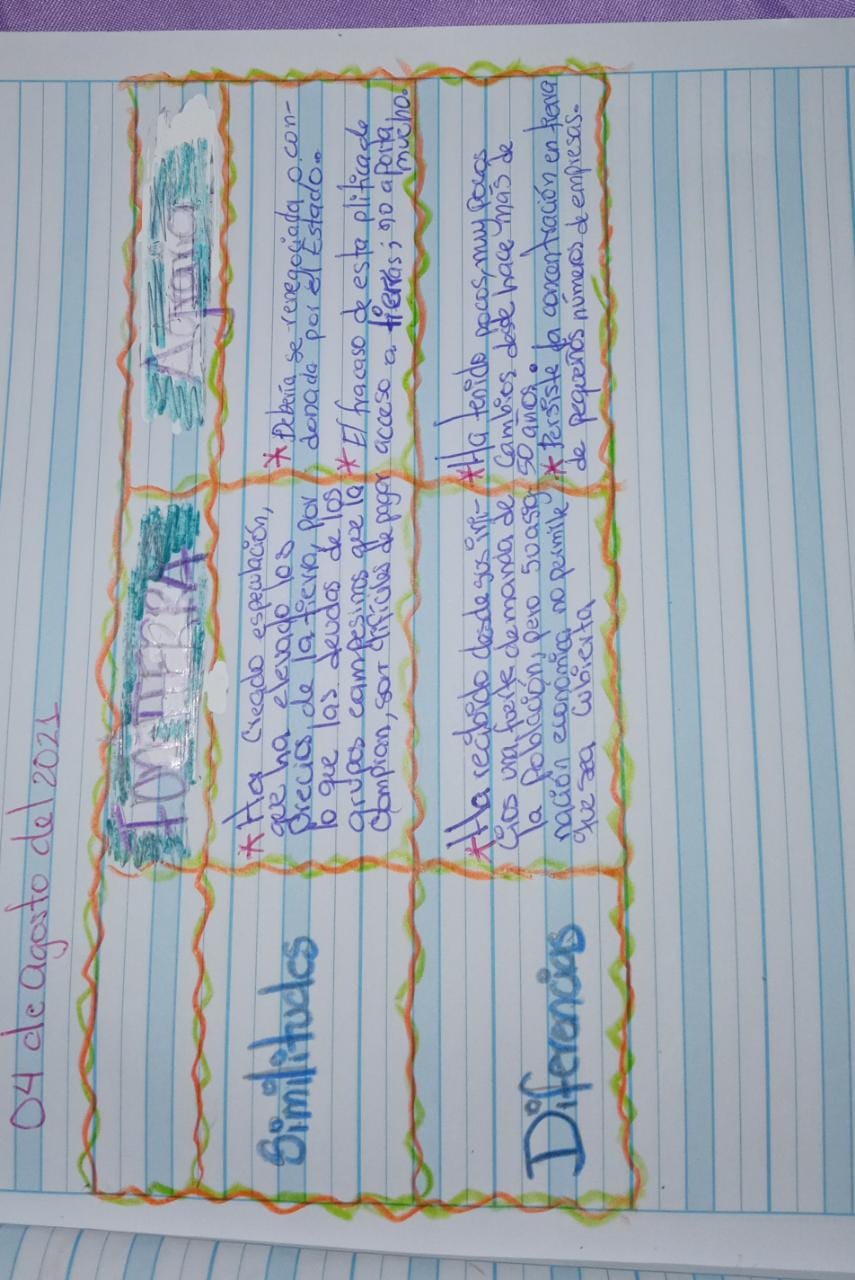 04 de Agosto del 2021
FONTIERRA
Agrario
Similitudes
* Ha creado especulación,
que ha elevado los
precios de la tierra, por
lo que las deudas de los
grupos campesinos que la
compran, son difíciles de pagar
* Debería se renegociada o con-
donada por el Estado.
* El fracaso de esta plitica de
acceso a tierras; no aporta
mucho.
Diferencias
* Ha recibido desde sus ini-
cios una fuerte demanda de
la población, pero su asig
nación económica no permite
que sea cubierta
* Ha tenido pocos, muy pocos
cambios desde hace más de
50 años.
* Persiste la concentración en tierra
de pequeños números de empresas.